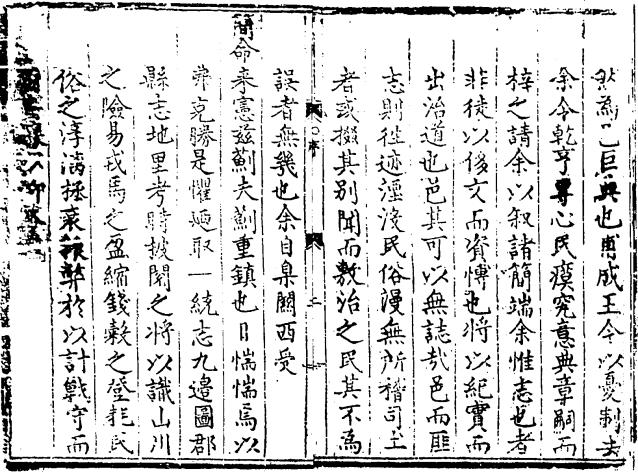 然為一邑巨典也甫成王令以憂制去
余令乾亨尊心民瘼究意典章嗣而
梓之請余以叙諸簡端余惟志也者
非徒以侈文而資博也將以紀實而
出治道也邑其可以無誌哉邑而匪
志則徃迹湮淺民俗漫無所稽司土
者或掇其別聞而敷治之民其不為
誤者無幾也余自臬關西受
簡命来憲兹薊夫薊重鎮也日惴惴焉以
弗克勝是懼廼取一統志九邊圖郡
縣志地里考時披閱之將以識山川
之險易戎馬之盈縮錢穀之登耗民
俗之淳漓拯菜報弊於以計戰守而
序
二